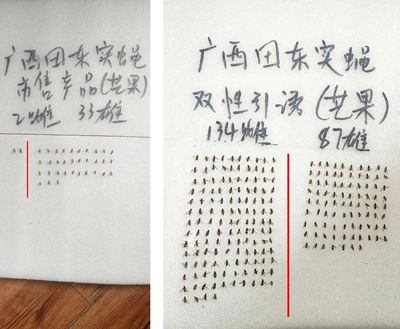 广西田东实蝇
市售产品(芒果)
2雌 33雄
广西田东实蝇
双性引诱(芒果)
134雌 87雄